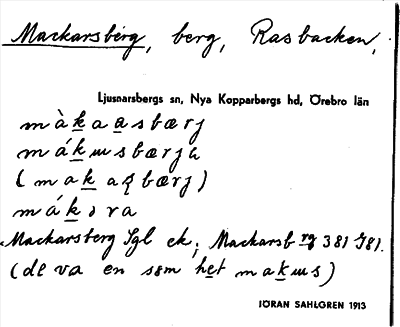 Mackarsberg, berg, Rasbacken,
Ljusnarsbergs sn, Nya Kopparbergs hd, Örebro län
màkaasbærj
mákɯsbærja
(makaʂbærj)
mákɔra
Mackarsberg Sgl ek; Mackarsb rg 381 J81.
(de va en som het makɯs)
JÖRAN SAHLGREN 1913